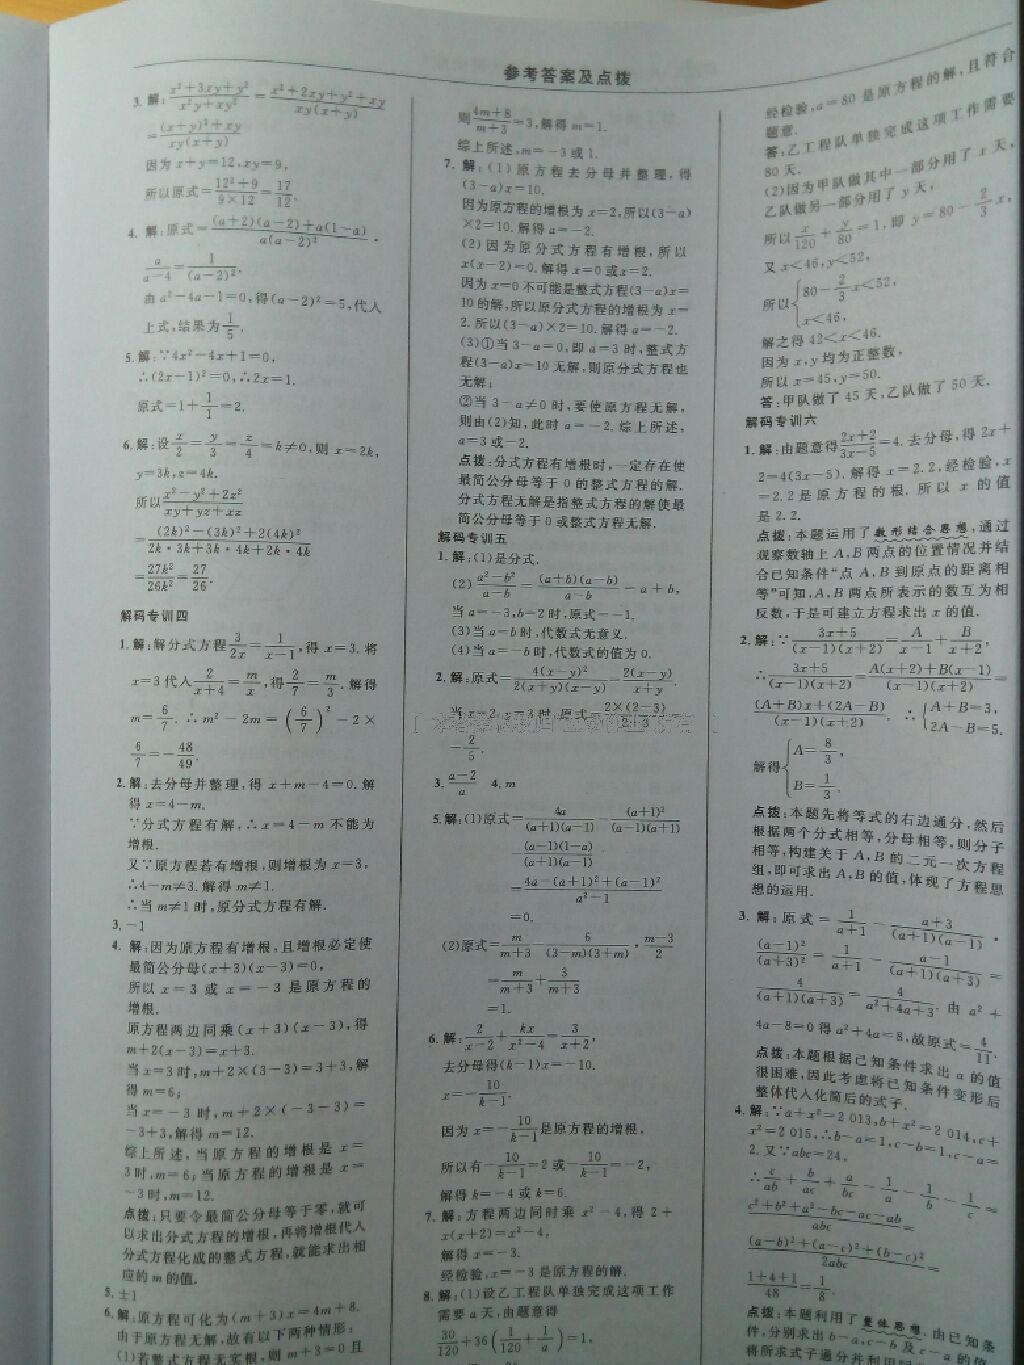 参考答案及点拨
3. 解:(x²+3xy+y²)/(x²y+xy²)=(x²+2xy+y²+xy)/(xy(x+y))
=((x+y)²+xy)/(xy(x+y))
因为x+y=12,xy=9,
所以原式=(12²+9)/(9×12)=17/12.
4. 解:原式=((a+2)(a-2)+a(1-a))/(a(a-2)²)·
a/(a-4)=1/(a-2)².
由a²-4a-1=0,得(a-2)²=5,代入
上式,结果为1/5.
5. 解:∵4x²-4x+1=0,
∴(2x-1)²=0,∴2x=1.
原式=1+1/1=2.
6. 解:设x/2=y/3=z/4=k≠0,则x=2k,
y=3k,z=4k.
所以(x²-y²+2z²)/(xy+yz+xz)
=((2k)²-(3k)²+2(4k)²)/(2k·3k+3k·4k+2k·4k)
=27k²/26k²=27/26.
解码专训四
1. 解:解分式方程3/2x=1/(x-1),得x=3.将
x=3代入2/(x+4)=m/x,得2/7=m/3.解得
m=6/7.∴m²-2m=(6/7)²-2×
6/7=-48/49.
2. 解:去分母并整理,得x+m-4=0.解
得x=4-m.
∵分式方程有解,∴x=4-m不能为
增根.
又∵原方程若有增根,则增根为x=3,
∴4-m≠3.解得m≠1.
∴当m≠1时,原分式方程有解.
3. -1
4. 解:因为原方程有增根,且增根必定使
最简公分母(x+3)(x-3)=0,
所以x=3或x=-3是原方程的
增根.
原方程两边同乘(x+3)(x-3),得
m+2(x-3)=x+3.
当x=3时,m+2×(3-3)=3+3,解
得m=6;
当x=-3时,m+2×(-3-3)=
-3+3,解得m=12.
综上所述,当原方程的增根是x=
3时,m=6;当原方程的增根是x=
-3时,m=12.
点拨:只要令最简公分母等于零,就可
以求出分式方程的增根,再将增根代入
分式方程化成的整式方程,就能求出相
应的m的值.
5. ±1
6. 解:原方程可化为(m+3)x=4m+8.
由于原方程无解,故有以下两种情形:
(1)若整式方程无实根,则m+3=0且
则(4m+8)/(m+3)=3,解得m=1.
综上所述,m=-3或1.
7. 解:(1)原方程去分母并整理,得
(3-a)x=10.
因为原方程的增根为x=2,所以(3-a)
×2=10.解得a=-2.
(2)因为原分式方程有增根,所以
x(x-2)=0.解得x=0或x=2.
因为x=0不可能是整式方程(3-a)x=
10的解,所以原分式方程的增根为x=
2.所以(3-a)×2=10.解得a=-2.
(3)①当3-a=0,即a=3时,整式方
程(3-a)x=10无解,则原分式方程也
无解;
②当3-a≠0时,要使原方程无解,
则由(2)知,此时a=-2.综上所述,
a=3或-2.
点拨:分式方程有增根时,一定存在使
最简公分母等于0的整式方程的解.
分式方程无解是指整式方程的解使最
简公分母等于0或整式方程无解.
解码专训五
1. 解:(1)是分式.
(2)(a²-b²)/(a-b)=(a+b)(a-b)/(a-b)=a+b,
当a=-3,b=2时,原式=-1.
(3)当a=b时,代数式无意义.
(4)当a=-b时,代数式的值为0.
2. 解:原式=4(x-y)²/(2(x+y)(x-y))=2(x-y)/(x+y).
当x=2,y=3时,原式=2×(2-3)/(2+3)=
-2/5.
3. (a-2)/a 4. m
5. 解:(1)原式=4a/((a+1)(a-1))-(a+1)²/((a-1)(a+1))
-(a-1)(1-a)/((a+1)(a-1))
=(4a-(a+1)²+(a-1)²)/(a²-1)
=0.
(2)原式=m/(m+3)-6/((3-m)(3+m))·(m-3)/2
=m/(m+3)+3/(m+3)
=1.
6. 解:2/(x-2)+kx/(x²-4)=3/(x+2),
去分母得(k-1)x=-10.
x=-10/(k-1).
因为x=-10/(k-1)是原方程的增根,
所以有-10/(k-1)=2或-10/(k-1)=-2,
解得k=-4或k=6.
7. 解:方程两边同时乘x²-4,得2+
x(x+2)=x²-4,
解得x=-3.
经检验,x=-3是原方程的解.
8. 解:(1)设乙工程队单独完成这项工作
需要a天,由题意得
30/120+36(1/120+1/a)=1,
经检验,a=80是原方程的解,且符合
题意.
答:乙工程队单独完成这项工作需要
80天.
(2)因为甲队做其中一部分用了x天,
乙队做另一部分用了y天,
所以x/120+y/80=1,即y=80-2/3x,
又x<46,y<52,
所以{80-2/3x<52,
x<46,
解之得42<x<46.
因为x,y均为正整数,
所以x=45,y=50.
答:甲队做了45天,乙队做了50天.
解码专训六
1. 解:由题意得(2x+2)/(3x-5)=4.去分母,得2x+
2=4(3x-5).解得x=2.2.经检验,x
=2.2是原方程的根.所以x的值
是2.2.
点拨:本题运用了数形结合思想,通过
观察数轴上A,B两点的位置情况并结
合已知条件“点A,B到原点的距离相
等”可知,A,B两点所表示的数互为相
反数,于是可建立方程求出x的值.
2. 解:∵(3x+5)/((x-1)(x+2))=A/(x-1)+B/(x+2),
∴(3x+5)/((x-1)(x+2))=(A(x+2)+B(x-1))/((x-1)(x+2))=
((A+B)x+(2A-B))/((x-1)(x+2)).∴{A+B=3,
2A-B=5.
解得{A=8/3,
B=1/3.
点拨:本题先将等式的右边通分,然后
根据两个分式相等,分母相等,则分子
相等,构建关于A,B的二元一次方程
组,即可求出A,B的值,体现了方程思
想的运用.
3. 解:原式=1/(a+1)-(a+3)/((a+1)(a-1))·
(a-1)²/(a+3)²=1/(a+1)-(a-1)/((a+1)(a+3))=
4/((a+1)(a+3))=4/(a²+4a+3).由a²+
4a-8=0得a²+4a=8,故原式=4/11.
点拨:本题根据已知条件求出a的值
很困难,因此考虑将已知条件变形后
整体代入化简后的式子.
4. 解:∵a+x²=2 013,b+x²=2 014,c+
x²=2 015,∴b-a=1,c-b=1,c-a=
2.又∵abc=24,
∴c/ab+b/ac+a/bc-1/a-1/b-1/c=
(c²+b²+a²-bc-ac-ab)/abc=
((a-b)²+(a-c)²+(b-c)²)/2abc=
(1+4+1)/48=1/8.
点拨:本题利用了整体思想,由已知条
件,分别求出b-a,c-b及c-a的值